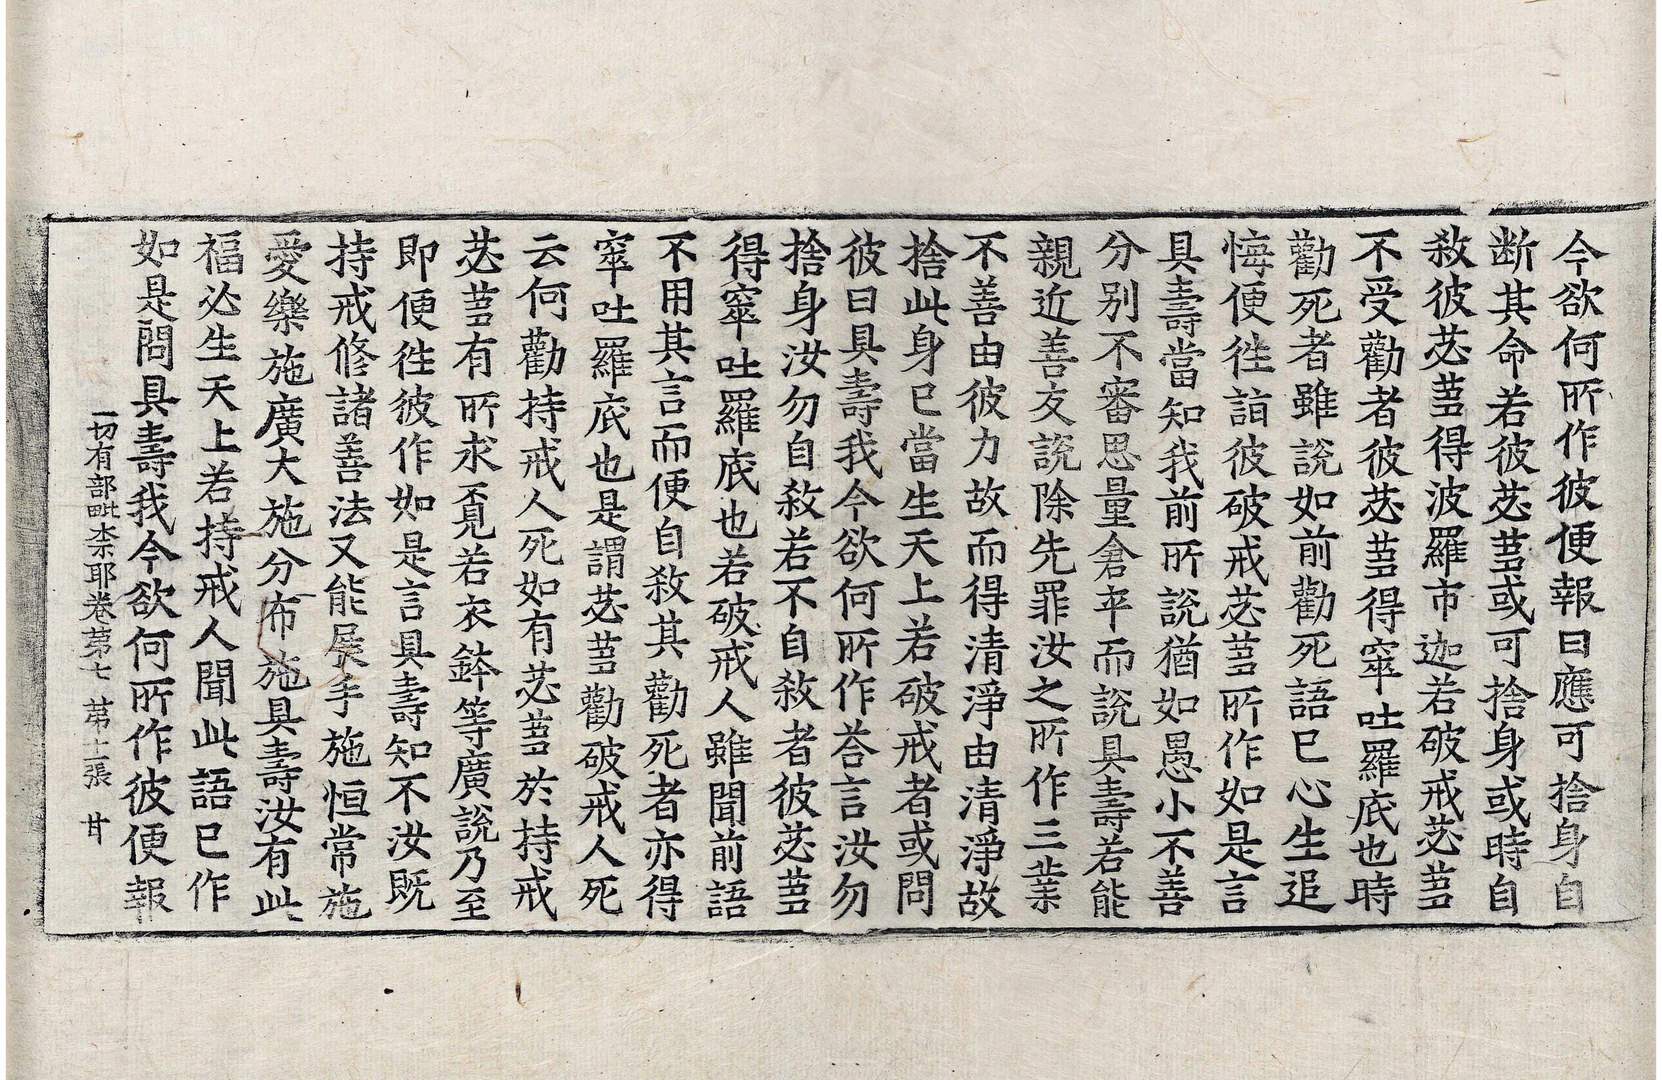 今欲何所作彼便報曰應可捨身自
断其命若彼苾芻或可捨身或時自
敎彼苾芻得波羅市迦若破戒苾芻
不受勸者彼苾芻得窣吐羅底也時
勸死者雖說如前勸死語已心生追
悔便徃詣彼破戒苾芻所作如是言
具壽當知我前所說猶如愚小不善
分別不審思量倉卒而說具壽若能
親近善友說除先罪汝之所作三業
不善由彼力故而得清淨由清淨故
捨此身已當生天上若破戒者或問
彼曰具壽我今欲何所作荅言汝勿
捨身汝勿自敎若不自敎者彼苾芻
得窣吐羅底也若破戒人雖聞前語
不用其言而便自敎其勸死者亦得
窣吐羅底也是謂苾芻勸破戒人死
云何勸持戒人死如有苾芻於持戒
苾芻有所求覔若衣鉢等廣說乃至
即便徃彼作如是言具壽知不汝既
持戒修諸善法又能展手施恒常施
愛樂施廣大施分布施具壽汝有此
福必生天上若持戒人聞此語已作
如是問具壽我今欲何所作彼便報
一切有部毗柰耶卷苐七　苐十二張　甘